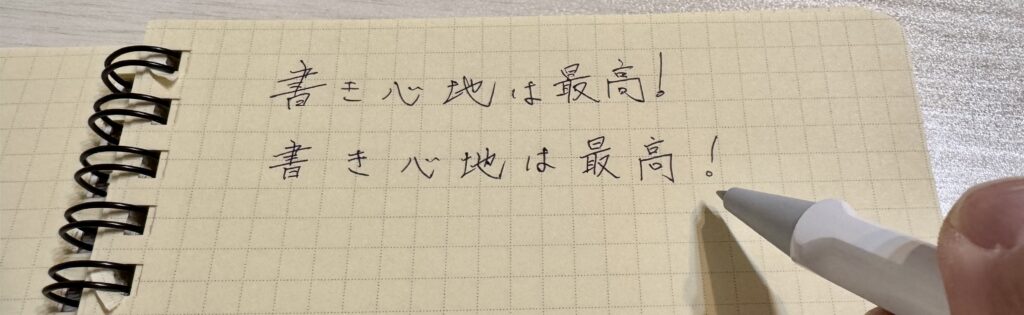 書き心地は最高!
書き心地は最高!